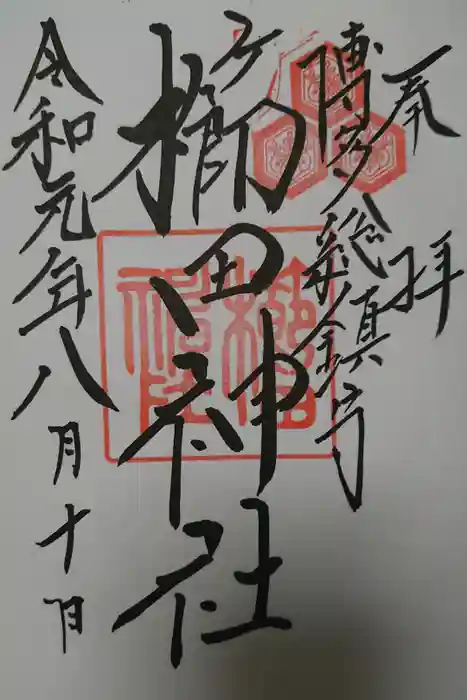 奉拝
博多総鎮守
櫛田神社
令和元年八月十日